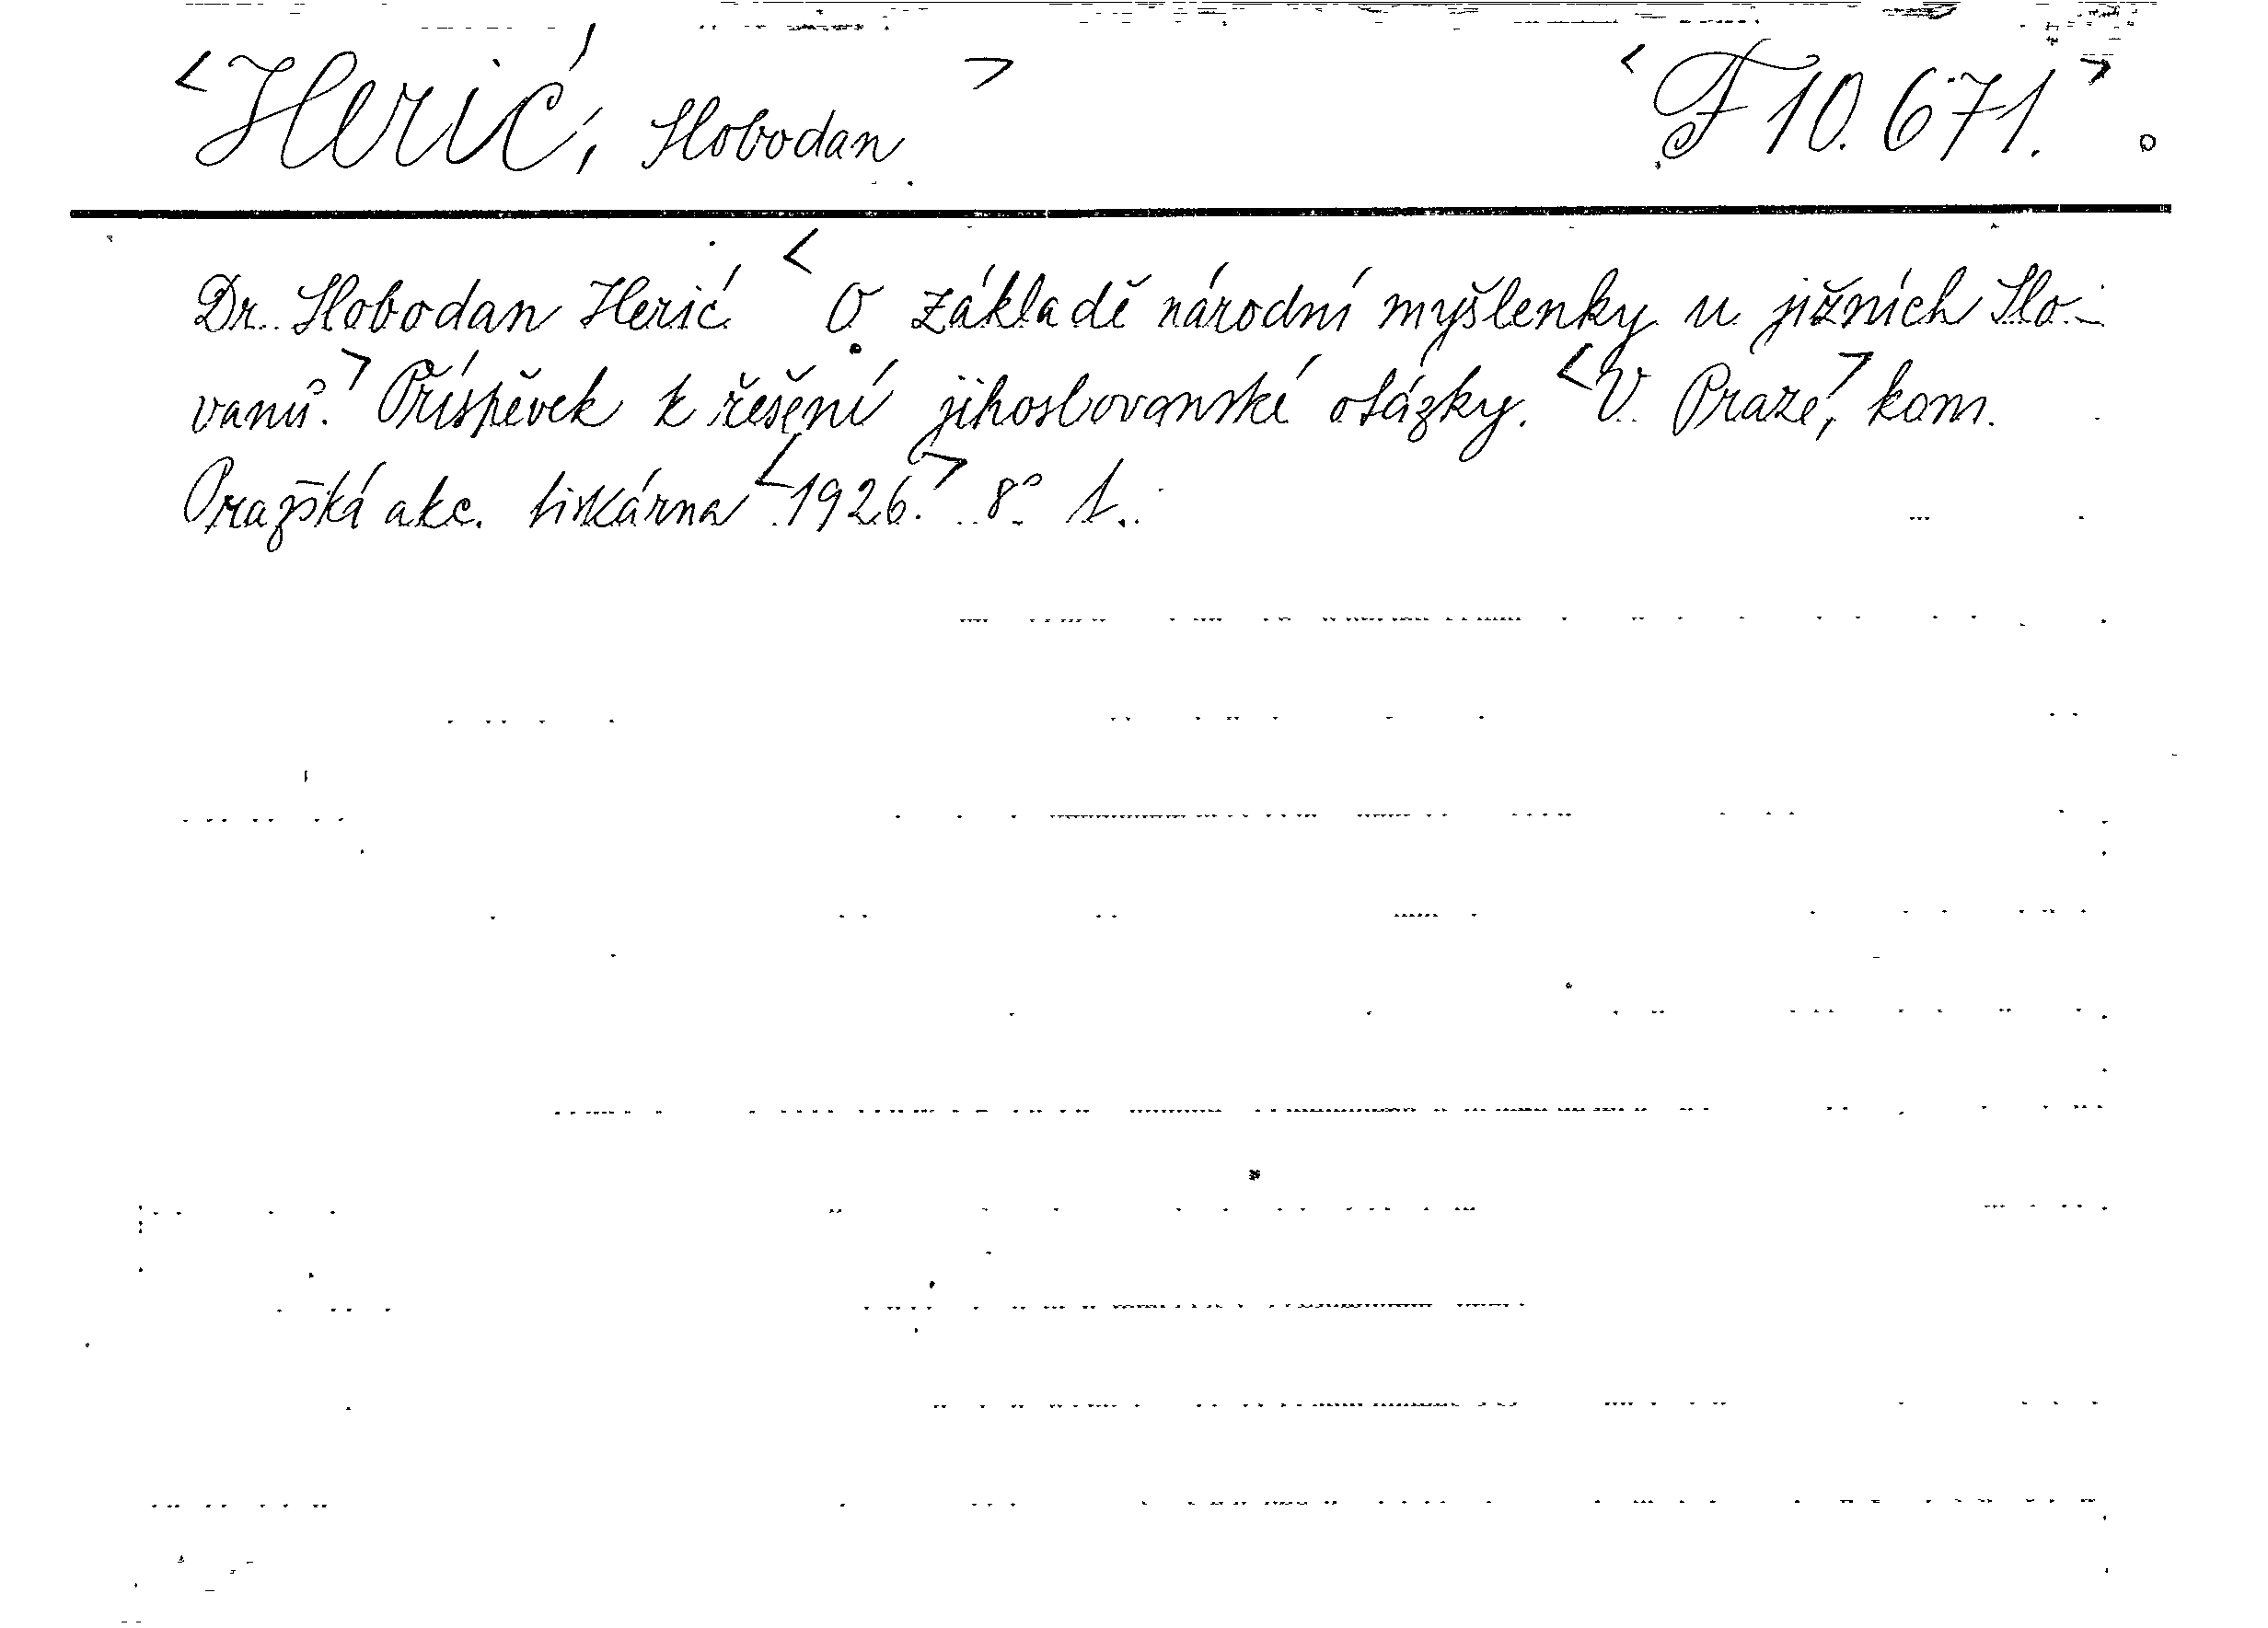 <Herić, Slobodan> <F 10.671.>
Dr. Slobodan Herić <O základě národní myšlenky u jižních Slo-
vanů.> Příspěvek k řešení jihoslovanské otázky. <V Praze,> kom.
Pražská akc. tiskárna <1926.> 8° 1.